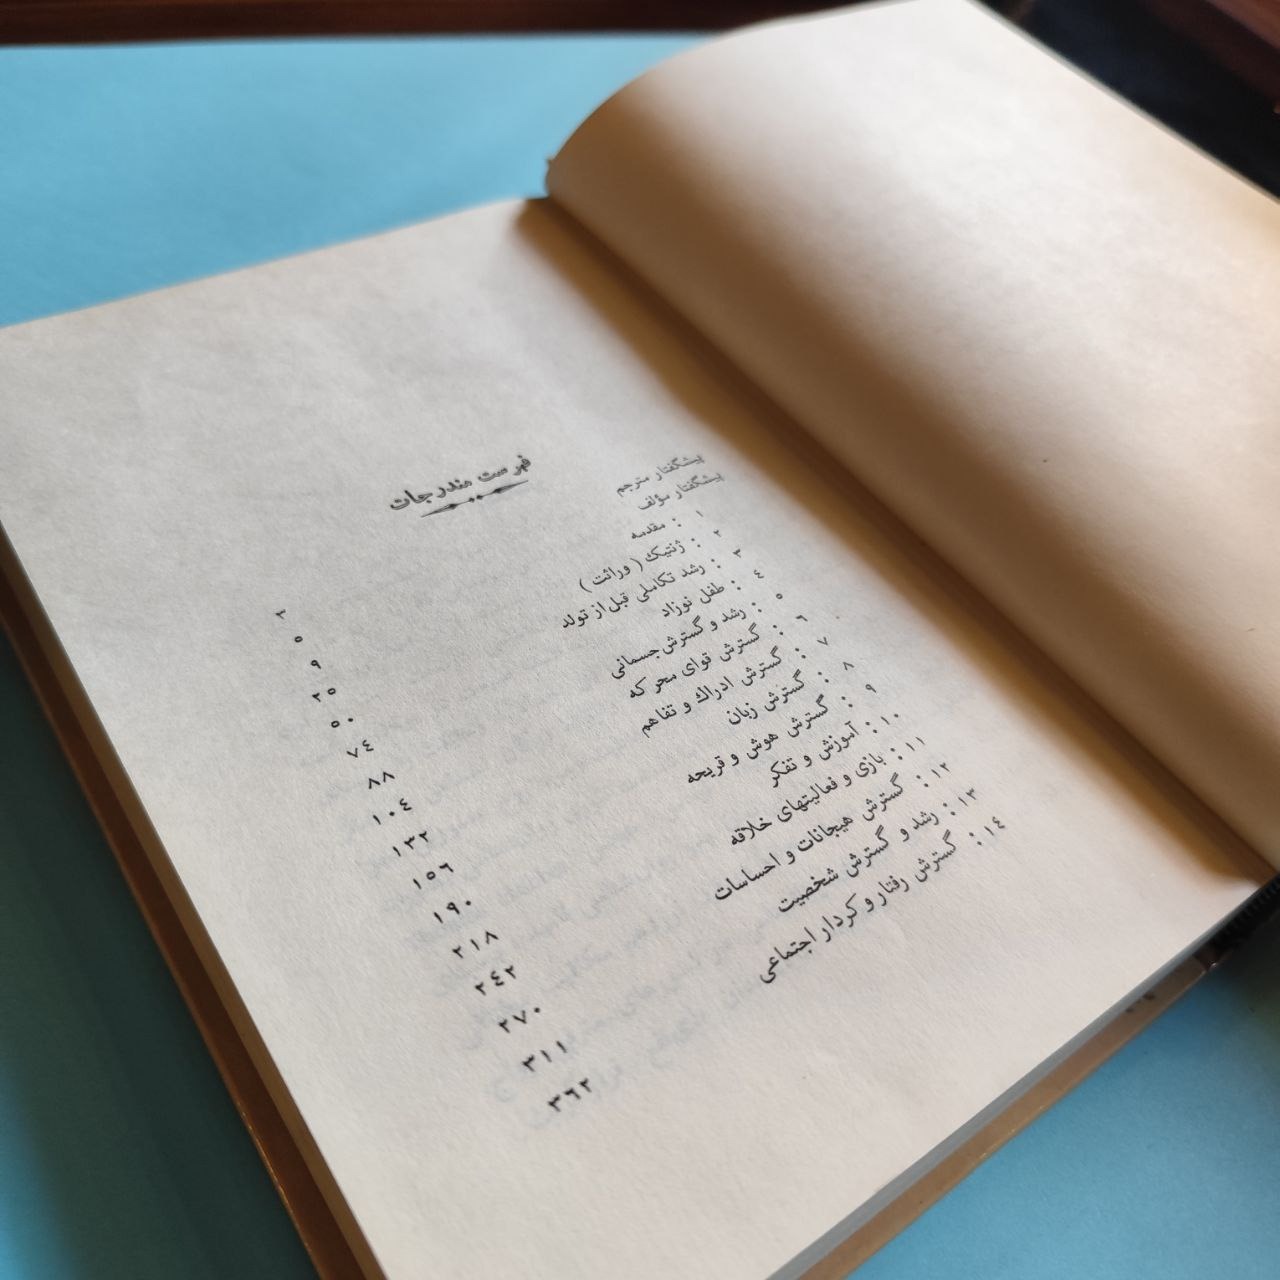 فهرست مندرجات
پیشگفتار مترجم ۳
پیشگفتار مؤلف ۵
۱ : مقدمه ۹
۲ : ژنتیك ( وراثت ) ۲۵
۳ : رشد تکاملی قبل از تولد ۵۰
۴ : طفل نوزاد ۷۴
۵ : رشد و گسترش جسمانی ۸۸
۶ : گسترش قوای محرکه ۱۰۴
۷ : گسترش ادراك و تفاهم ۱۳۲
۸ : گسترش زبان ۱۵۶
۹ : گسترش هوش و قریحه ۱۹۰
۱۰ : آموزش و تفکر ۲۱۸
۱۱ : بازی و فعالیتهای خلاقه ۲۴۲
۱۲ : گسترش هیجانات و احساسات ۲۷۰
۱۳ : رشد و گسترش شخصیت ۳۱۱
۱۴ : گسترش رفتار و کردار اجتماعی ۳۶۲